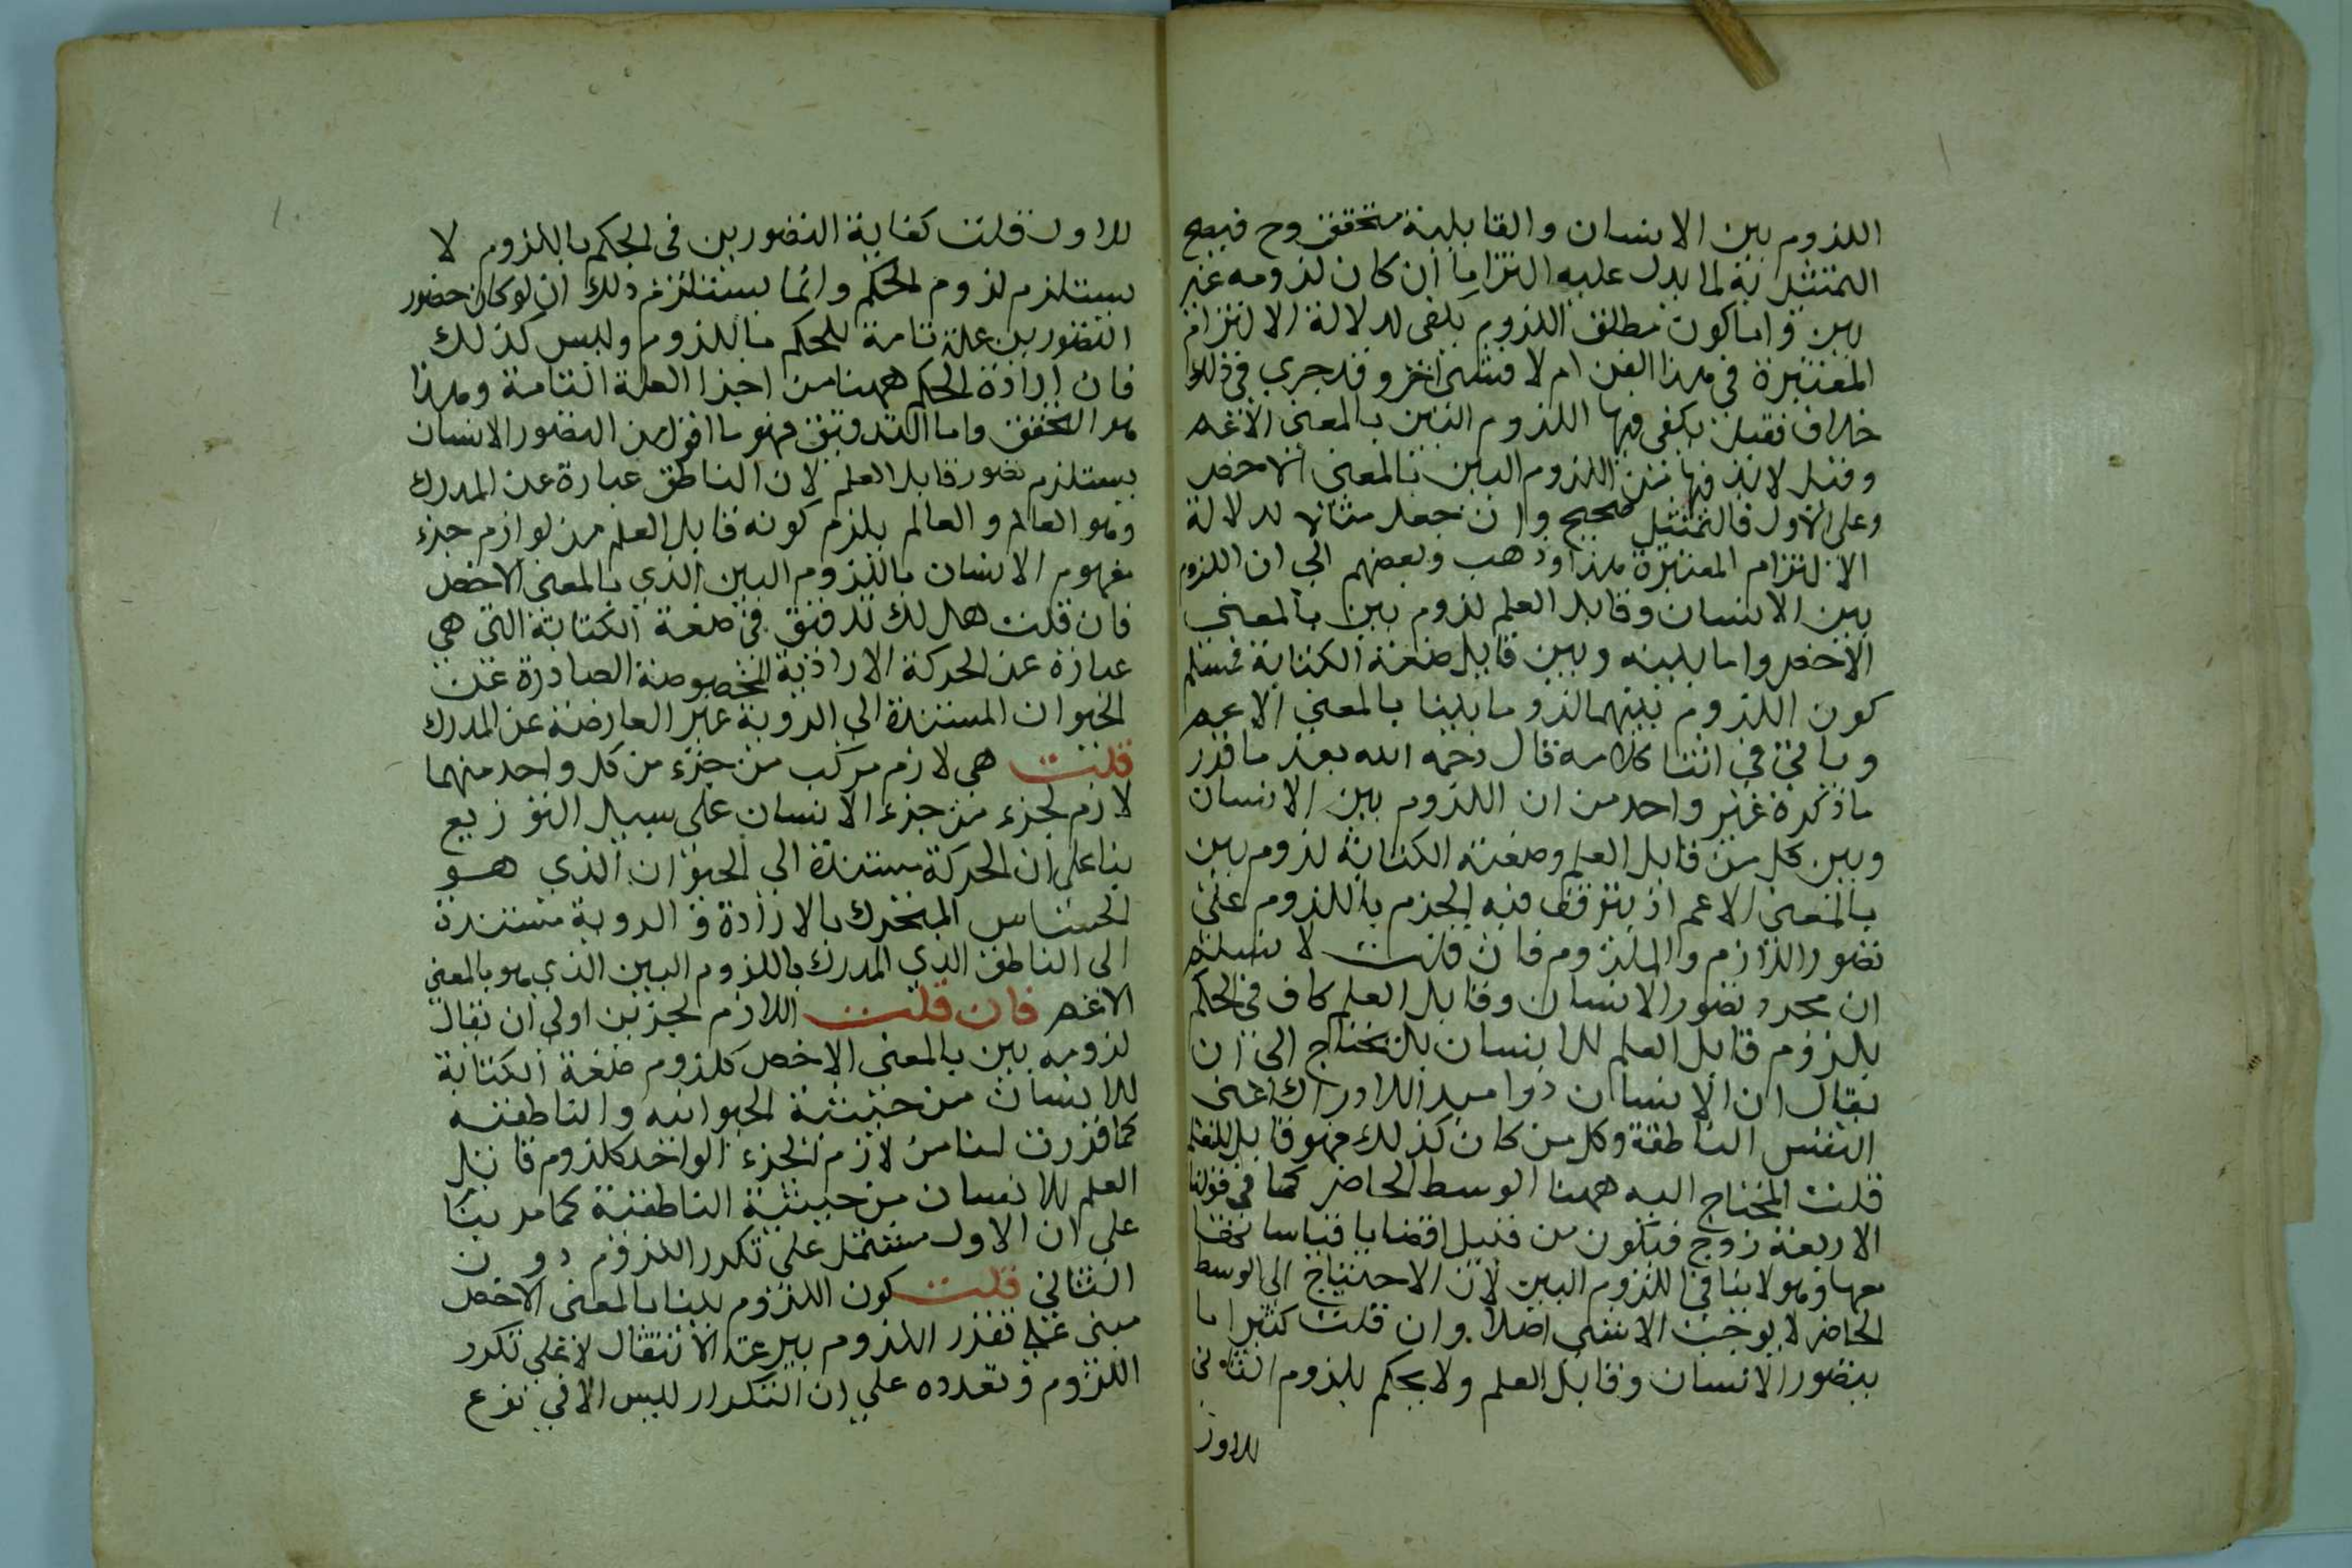 اللزوم بين الانسان والقابلية متحقق وح فيصح
التمثيل به لما يدل عليه التزاما ان كان لزومه غير
بين واما كون مطلق اللزوم يكفى لدلالة الالتزام
المعتبرة في هذا الفن ام لا فشئ اخر وقد جري في ذلك
خلاف فقيل يكفى فيها اللزوم البين بالمعنى الاعم
وقيل لابد فيها من اللزوم البين بالمعنى الاخص
وعلى الاول فالتمثيل صحيح وان جعل مثالا لدلالة
الالتزام المعتبرة هذا وذهب بعضهم الي ان اللزوم
بين الانسان وقابل العلم لزوم بين بالمعنى
الاخص واما بينه وبين قابل صنعة الكتابة فمسلم
كون اللزوم بينهما لزوما بينا بالمعنى الاعم
وياتي في اثنا كلامه قال رحمه الله بعد ما قرر
ما ذكره غير واحد من ان اللزوم بين الانسان
وبين كل من قابل العلم وصنعة الكتابة لزوم بين
بالمعنى الاعم اذ يتوقف فيه الجزم باللزوم على
تصور اللازم والملزوم فان قلت لا نسلم
ان مجرد تصور الانسان وقابل العلم كاف في الحكم
بلزوم قابل العلم للانسان بل يحتاج الى ان
يقال ان الانسان ذوا مبدا للادراك اعنى
النفس الناطقة وكل من كان كذلك فهو قابل للعلم
قلت المحتاج اليه ههنا الوسط الحاضر كما في قولنا
الاربعة زوج فيكون من قبيل قضايا قياساتها
معها وهو لا ينافي اللزوم البين لان الاحتياج الى الوسط
الحاضر لا يوجب الانتفى اصلا وان قلت كثيرا ما
يتصور الانسان وقابل العلم ولا يحكم بلزوم الثاني
للاول
للاول قلت كفاية التصورين فى الحكم باللزوم لا
يستلزم لزوم الحكم وانما يستلزم ذلك ان لو كان حضور
التصورين علة تامة للحكم باللزوم وليس كذلك
فان ارادة الحكم ههنا من اجزا العلة التامة وهذا
هو التحقق واما التدقيق فهو ما اقول من التصور الانسان
يستلزم تصور قابل العلم لان الناطق عبارة عن المدرك
وهو العالم والعالم يلزم كونه قابل العلم من لوازم جزء
مفهوم الانسان باللزوم البين الذي بالمعنى الاخص
فان قلت هل لك تدقيق في صنعة الكتابة التي هي
عبارة عن الحركة الارادية المخصوصة الصادرة عن
الحيوان المستندة الي الروية غير العارضة عن المدرك
قلت هي لازم مركب من جزء من كل واحد منهما
لازم لجزء من جزء الانسان على سبيل التوزيع
بنا على ان الحركة مستندة الي الحيوان الذي هو
الحساس المتحرك بالارادة و الروية مستندة
الى الناطق الذي المدرك باللزوم البين الذي هو بالمعنى
الاعم فان قلت اللازم لجزئين اولى ان يقال
لزومه بين بالمعنى الاخص كلزوم صنعة الكتابة
للانسان من حيثية الحيوانيه والناطقيه
كما قررت لنا من لازم الجزء الواحد كلزوم قابل
العلم للانسان من حيثية الناطقية كما مر بينا
علي ان الاول مشتمل علي تكرر اللزوم دون
الثاني قلت كون اللزوم بينا بالمعنى الاخص
مبنى على تقرر اللزوم بسرعة الانتقال لا علي تكرر
اللزوم وتعدده علي ان التكرار ليس الا في نوع